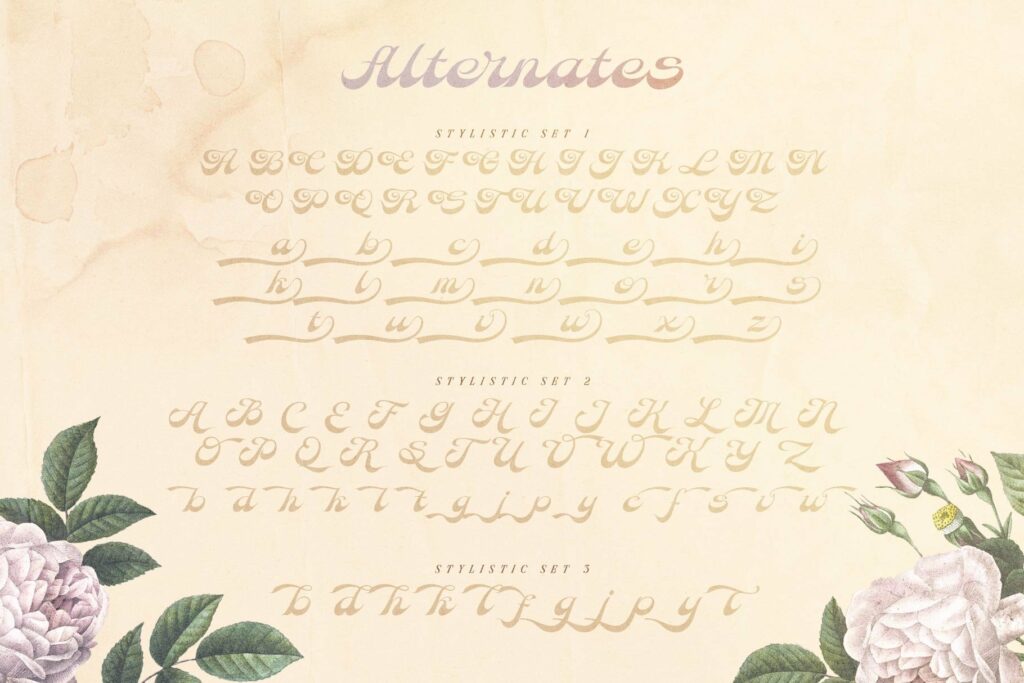 Alternates
STYLISTIC SET 1
A B C D E F G H I J K L M N
O P Q R S T U V W X Y Z
a b c d e h i
k l m n o r s
t u v w x z
STYLISTIC SET 2
A B C E F G H I J K L M N
O P Q R S T U V W X Y Z
b d h k l t g j p y c f s v w
STYLISTIC SET 3
b d h k l f g j p y t